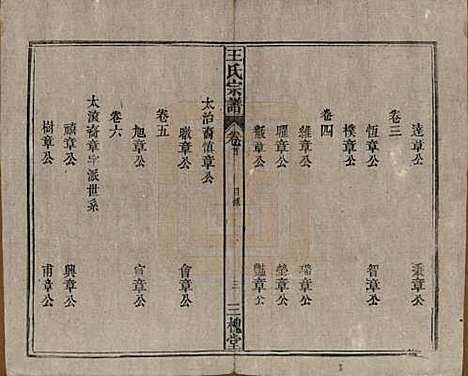 達章公　秉章公
卷三
恆章公　智章公
樸章公
卷四
維章公　瑞章公
耀章公　瑩章公
黻章公　豔章公
王氏宗譜　卷首　目錄　三　三槐堂
太治裔慎章公
徽章公　會章公
卷五
旭章公　宣章公
卷六
太濱裔章字派世系
禎章公　興章公
樹章公　甫章公